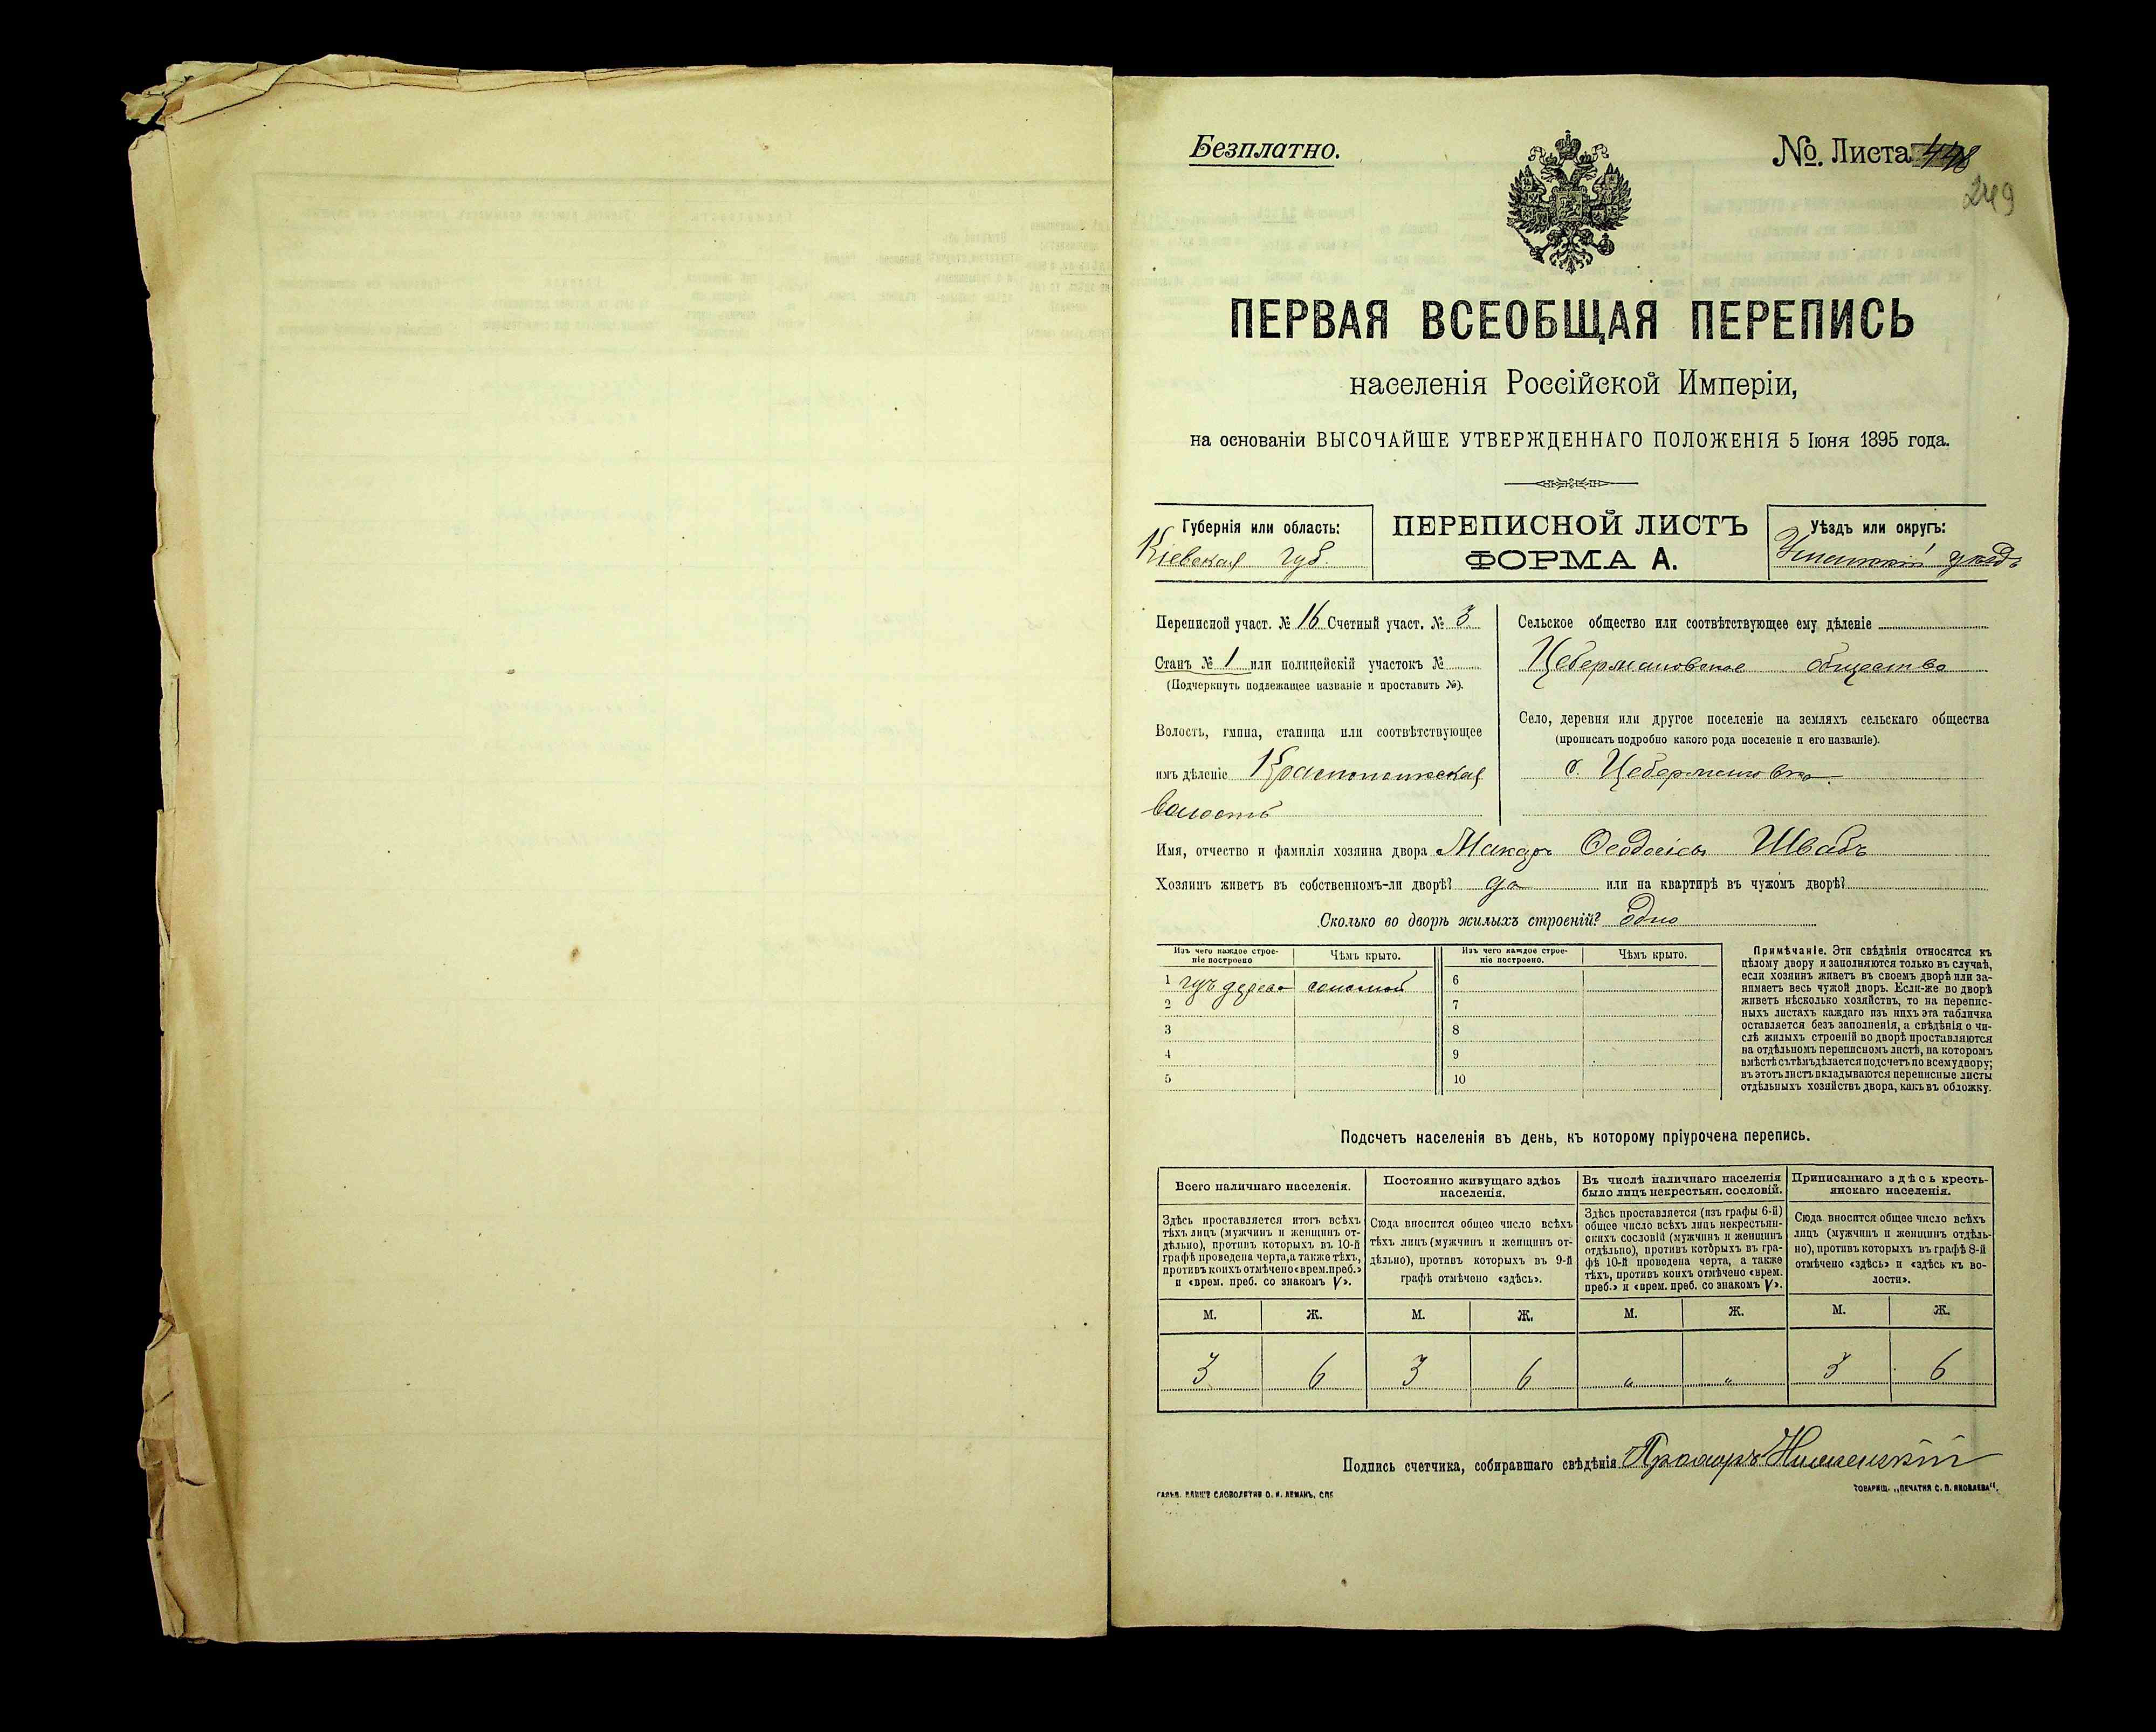 Безплатно.
№. Листа 448
249
ПЕРВАЯ ВСЕОБЩАЯ ПЕРЕПИСЬ
населенія Россійской Имперіи,
на основаніи ВЫСОЧАЙШЕ УТВЕРЖДЕННАГО ПОЛОЖЕНІЯ 5 Іюня 1895 года.
Губернія или область:
Кіевская губ.
ПЕРЕПИСНОЙ ЛИСТЪ
ФОРМА А.
Уѣздъ или округъ:
Уманскій уѣздъ
Переписной участ. № 16 Счетный участ. № 3
Станъ № 1 или полицейскій участокъ №
(Подчеркнуть подлежащее названіе и проставить №).
Волость, гмина, станица или соотвѣтствующее
имъ дѣленіе
волость
Сельское общество или соотвѣтствующее ему дѣленіе
Цебермановское общество
Село, деревня или другое поселеніе на земляхъ сельскаго общества
(прописать подробно какого рода поселеніе и его названіе).
с. Цебермановка
Имя, отчество и фамилія хозяина двора Макаръ Ѳеодосіевъ Швабъ
Хозяинъ живетъ въ собственномъ-ли дворѣ? да или на квартирѣ въ чужомъ дворѣ?
Сколько во дворѣ жилыхъ строеній? одно
Изъ чего каждое строе-
ніе построено
Чѣмъ крыто.
Изъ чего каждое строе-
ніе построено.
Чѣмъ крыто.
1 изъ дерева соломой
2
3
4
5
6
7
8
9
10
Примѣчаніе. Эти свѣдѣнія относятся къ
цѣлому двору и заполняются только въ случаѣ,
если хозяинъ живетъ въ своемъ дворѣ или за-
нимаетъ весь чужой дворъ. Если-же во дворѣ
живетъ нѣсколько хозяйствъ, то на перепис-
ныхъ листахъ каждаго изъ нихъ эта табличка
оставляется безъ заполненія, а свѣдѣнія о чи-
слѣ жилыхъ строеній во дворѣ проставляются
на отдѣльномъ переписномъ листѣ, на которомъ
вмѣстѣ съ тѣмъ дѣлается подсчетъ по всему двору;
въ этотъ листъ вкладываются переписные листы
отдѣльныхъ хозяйствъ двора, какъ въ обложку.
Подсчетъ населенія въ день, къ которому пріурочена перепись.
Всего наличнаго населенія.
Здѣсь проставляется итогъ всѣхъ
тѣхъ лицъ (мужчинъ и женщинъ от-
дѣльно), противъ которыхъ въ 10-й
графѣ проведена черта, а также тѣхъ,
противъ коихъ отмѣчено «врем. преб.»
и «врем. преб. со знакомъ V».
Постоянно живущаго здѣсь
населенія.
Сюда вносится общее число всѣхъ
тѣхъ лицъ (мужчинъ и женщинъ от-
дѣльно), противъ которыхъ въ 9-й
графѣ отмѣчено «здѣсь».
Въ числѣ наличнаго населенія
было лицъ некрестьян. сословій.
Здѣсь проставляется (изъ графы 6-й)
общее число всѣхъ лицъ некрестьян-
скихъ сословій (мужчинъ и женщинъ
отдѣльно), противъ которыхъ въ гра-
фѣ 10-й проведена черта, а также
тѣхъ, противъ коихъ отмѣчено «врем.
преб.» и «врем. преб. со знакомъ V».
Приписаннаго здѣсь кресть-
янскаго населенія.
Сюда вносится общее число всѣхъ
лицъ (мужчинъ и женщинъ отдѣль-
но), противъ которыхъ въ графѣ 8-й
отмѣчено «здѣсь» и «здѣсь къ во-
лости».
М. Ж. М. Ж. М. Ж. М. Ж.
3 6 3 6 " " 3 6
Подпись счетчика, собиравшаго свѣдѣнія
ГАЛЬВ. КЛИШЕ СЛОВОЛИТНИ О. И. ЛЕМАНЪ, СПБ
ТОВАРИЩ. „ПЕЧАТНЯ С. П. ЯКОВЛЕВА“.